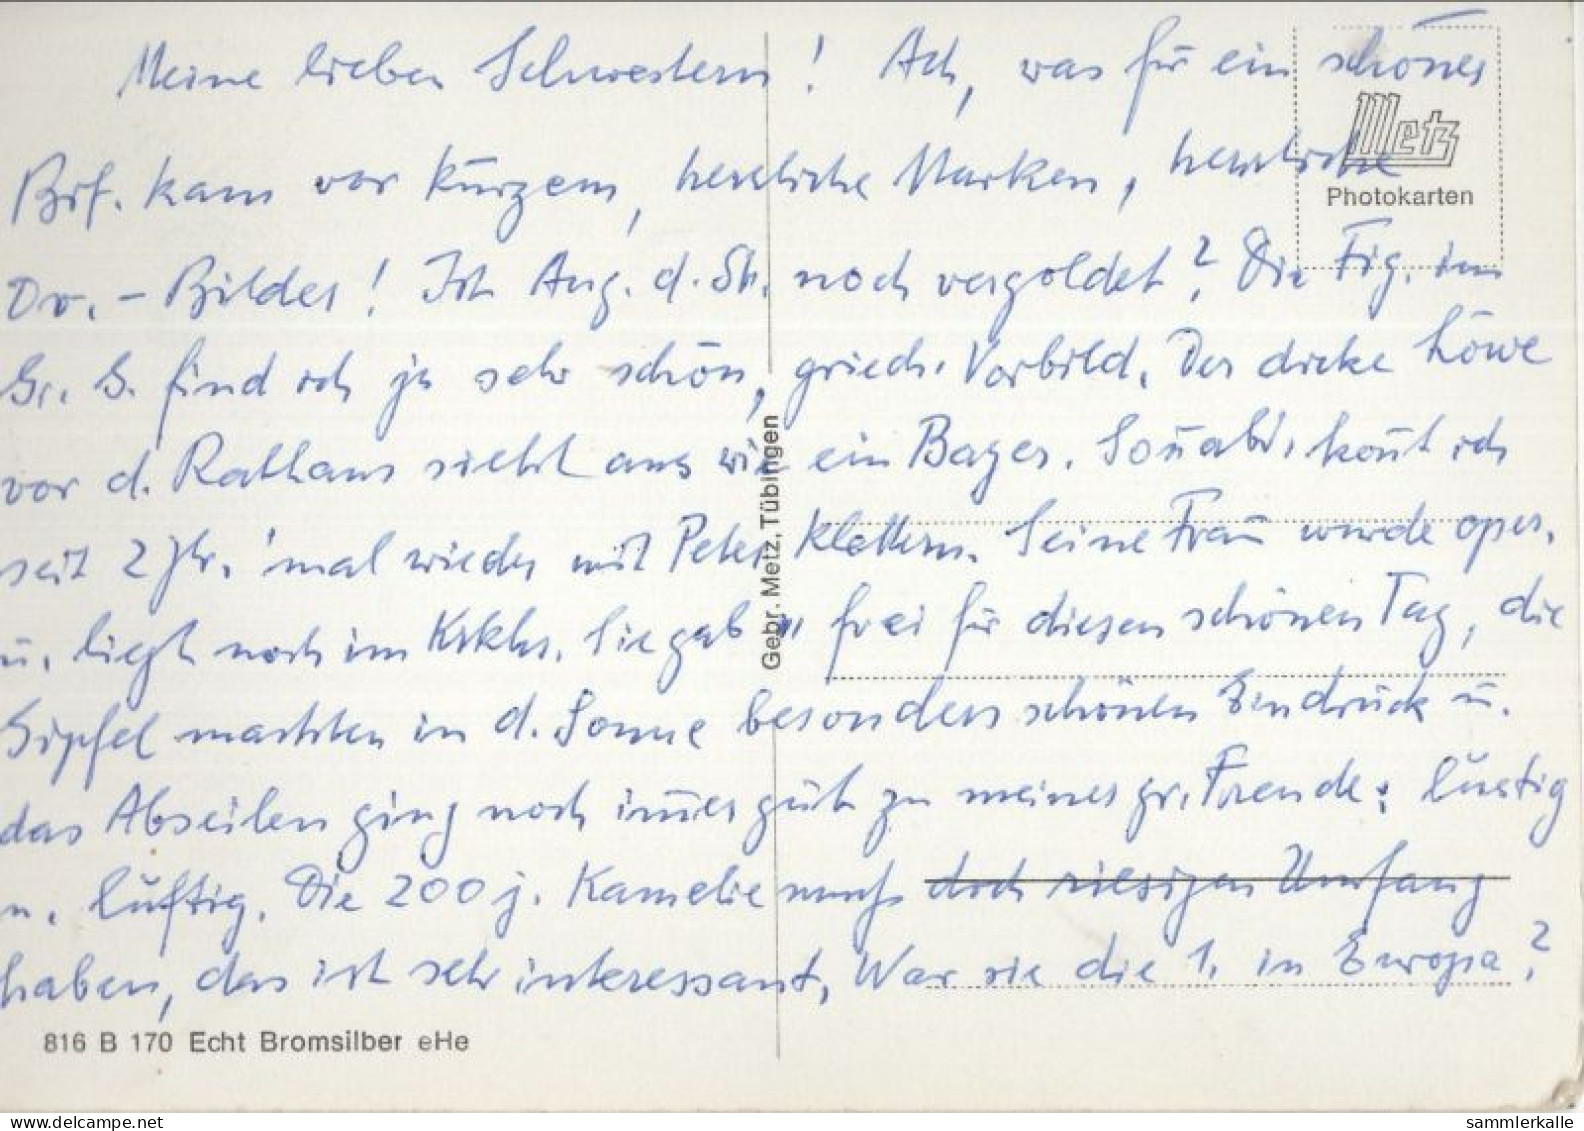 Meine lieben Schwestern! Ach, was für ein schönes
Brf. kam vor kurzem, herrliche Marken, herrliche
Metz
Photokarten
Dr.-Bilder! Ist Aug. d. St. noch vergoldet? Die Fig. im
Gr. G. find ich ja sehr schön, griech. Vorbild. Der dicke Löwe
vor d. Rathaus sieht aus wie ein Bayer. Sonnabd. konnt ich
seit 2 Jhr. 'mal wieder mit Peter klettern. Seine Frau wurde oper.
u. liegt noch im Krkhs. Sie gab " frei für diesen schönen Tag, die
Gipfel machten in d. Sonne besonders schönen Eindruck u.
das Abseilen ging noch immer gut zu meiner gr. Freude: lustig
u. luftig. Die 200 j. Kamelie muß doch riesigen Umfang
haben, das ist sehr interessant, War sie die 1. in Europa?
Gebr. Metz, Tübingen
816 B 170 Echt Bromsilber eHe
www.delcampe.net
sammlerkalle